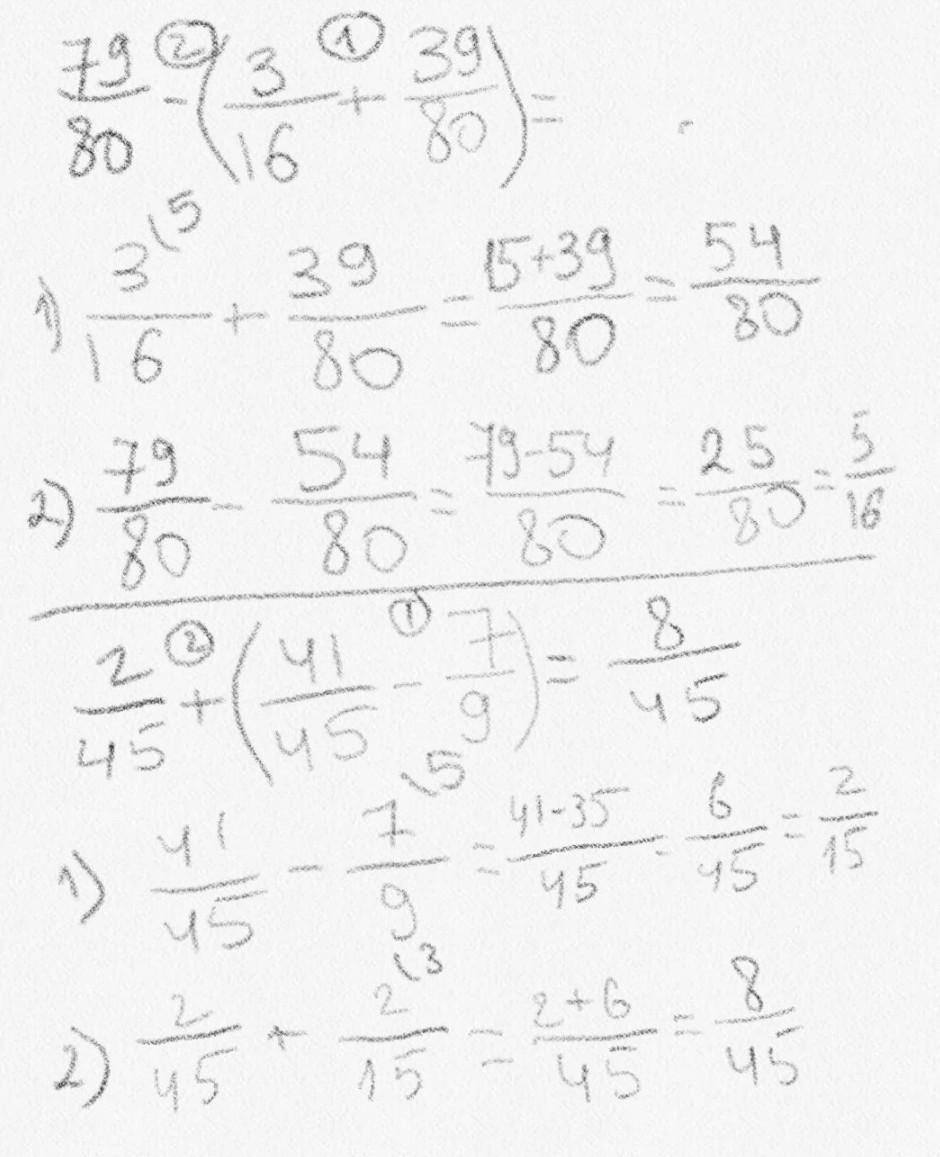 79/80 ② - (3/16 ① + 39/80) =
1) 3(5/16 + 39/80 = 15+39/80 = 54/80
2) 79/80 - 54/80 = 79-54/80 = 25/80 = 5/16
2/45 ② + (41/45 ① - 7/9) = 8/45
1) 41/45 - 7(5/9 = 41-35/45 = 6/45 = 2/15
2) 2/45 + 2(3/15 = 2+6/45 = 8/45